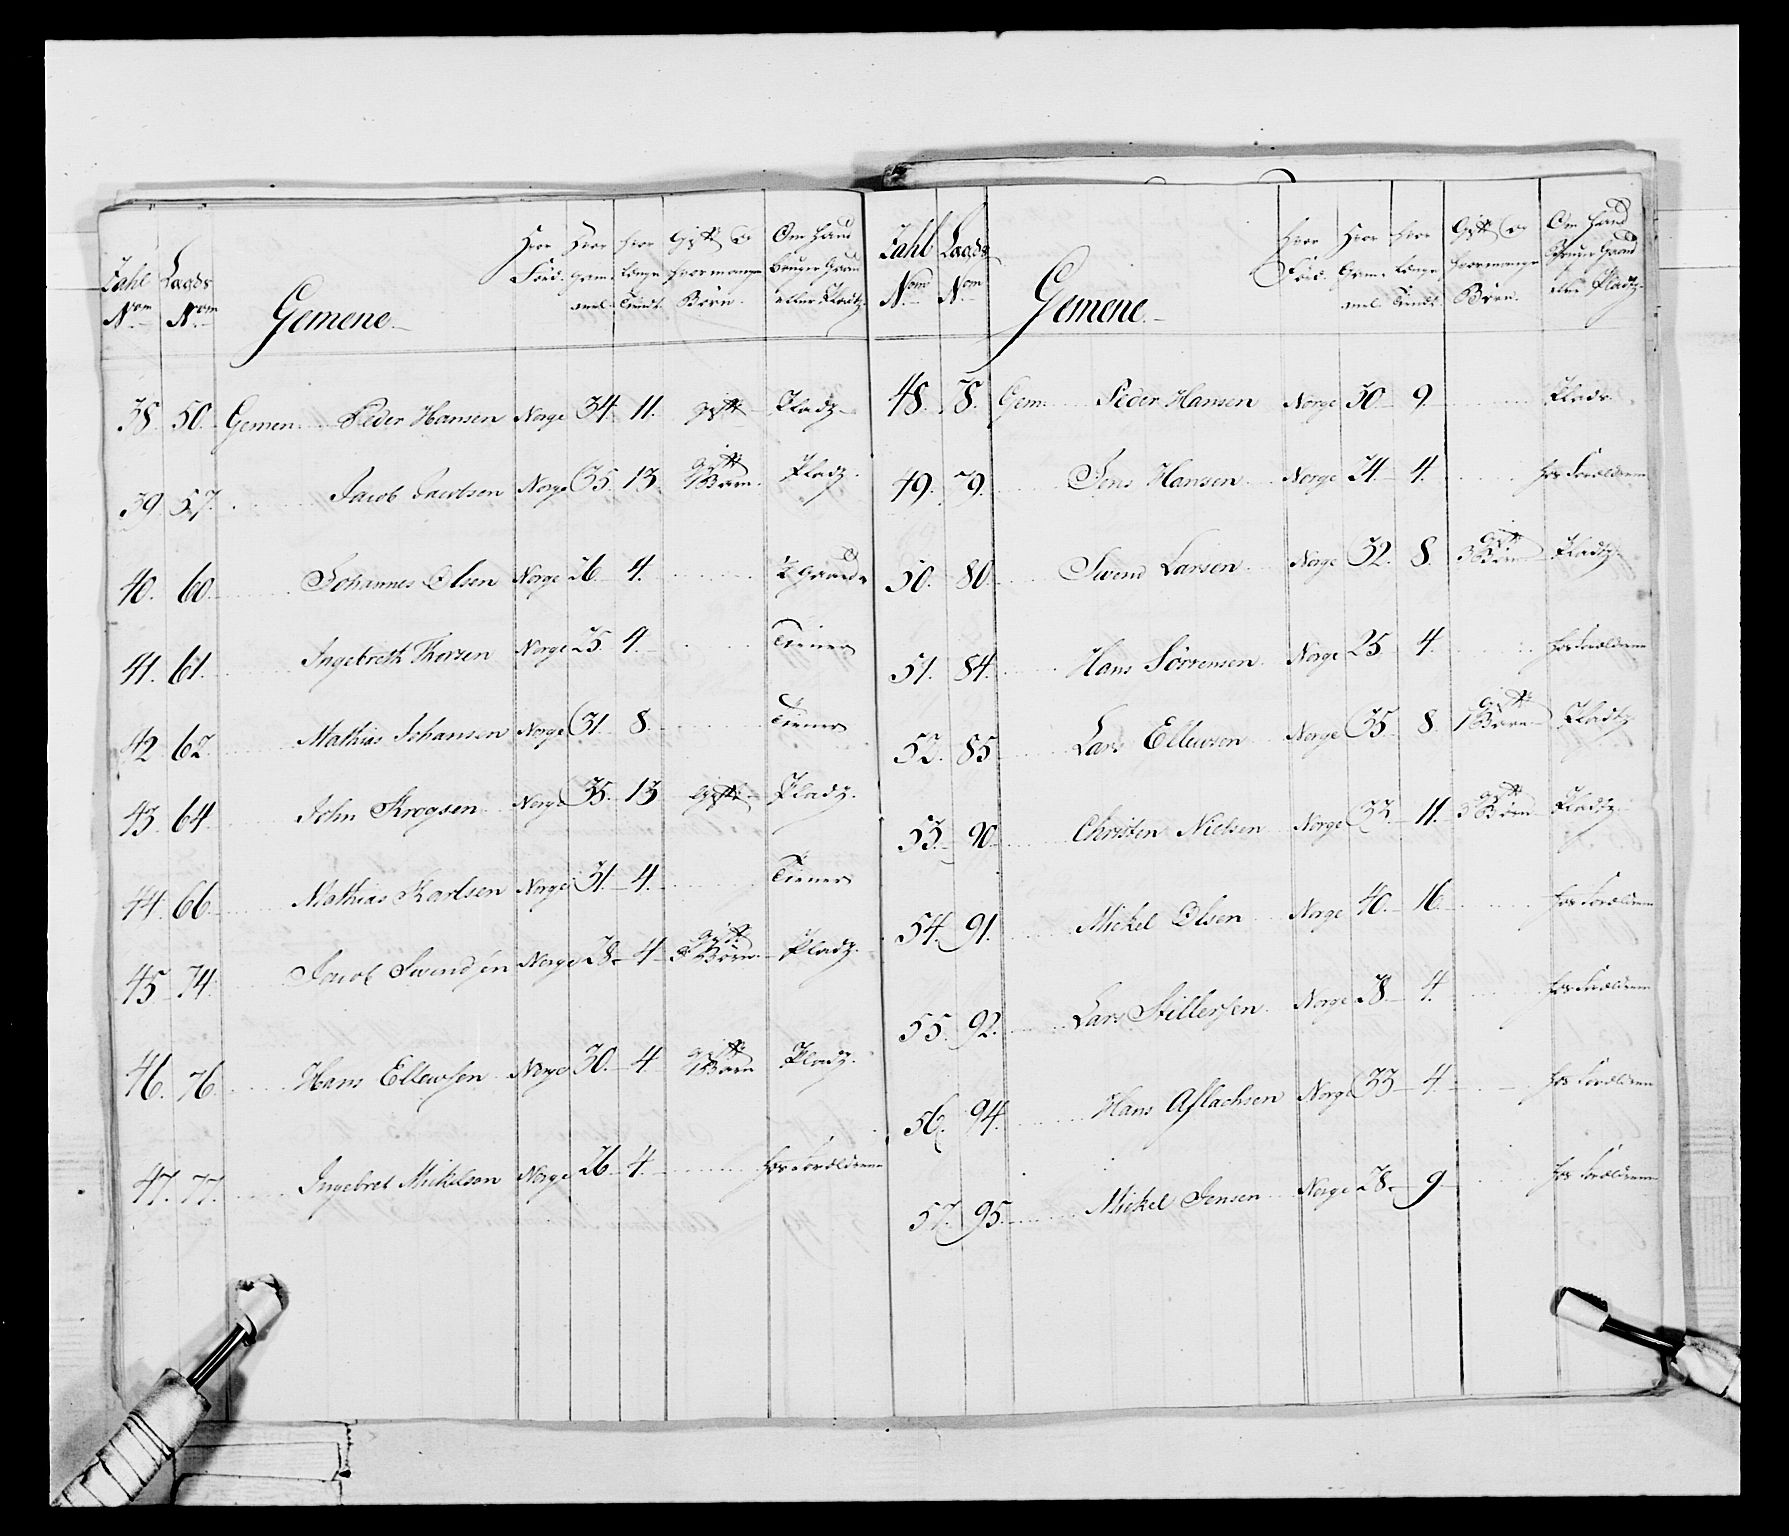 Tahl Nom Lagds Nom Gemene. Hvor Föd. Hvor gam- mel Hvor længe Tient. Gift og hvor mange Börn. Om hand bruger Gaard eller Pladtz
38. 50. Gemen. Peder Hansen Norge 34. 11. gift Pladz.
39. 57. Jacob Jacobsen Norge 35. 13. gift 1 Barn. Pladz.
40. 60. Johannes Olsen Norge 26. 4. 1/2 Gaard
41. 61. Ingebreth Thorsen Norge 25. 4. Tiener
42. 62. Mathias Johansen Norge 31. 8. Tiener
43. 64. John Krogsen Norge 35. 13 Gift Pladz.
44. 66. Mathias Karlsen Norge 31. 4. Tiener
45. 74. Jacob Swendsen Norge 28. 4. gift Börn. Pladz.
46. 76. Hans Ellewsen Norge 30. 4 gift 1 Barn Pladz.
47. 77. Ingebret Mickelsen Norge 26. 4. hos Forældrene
Tahl Nom Lagds Nom Gemene. Hvor Föd. Hvor Gam- mel Hvor længe Tient. Gift og hvor mange Börn. Om Hand Bruger Gaard eller Pladtz.
48. 78. Gem. Peder Hansen Norge 30. 9. Pladz.
49. 79. Jens Hansen Norge 24. 4. hos Forældrene
50. 80. Swend Larsen Norge 32. 8. gift 3 Börn Pladtz.
51. 84. Hans Sörrensen Norge 25. 4. hos Forældrene
52. 85. Lars Ellewsen Norge 35. 8. gift 1 Barn Pladtz
53. 90. Christen Nielsen Norge 33. 11. gift 3 Börn Pladtz.
54. 91. Mickel Olsen Norge 40. 16. hos Forældrene
55. 92. Lars Stillersen Norge 28. 4. hos Forældrene
56. 94. Hans Aslachsen Norge 33. 4. hos Forældrene
57. 95. Mickel Jensen Norge 28. 9. hos Forældrene